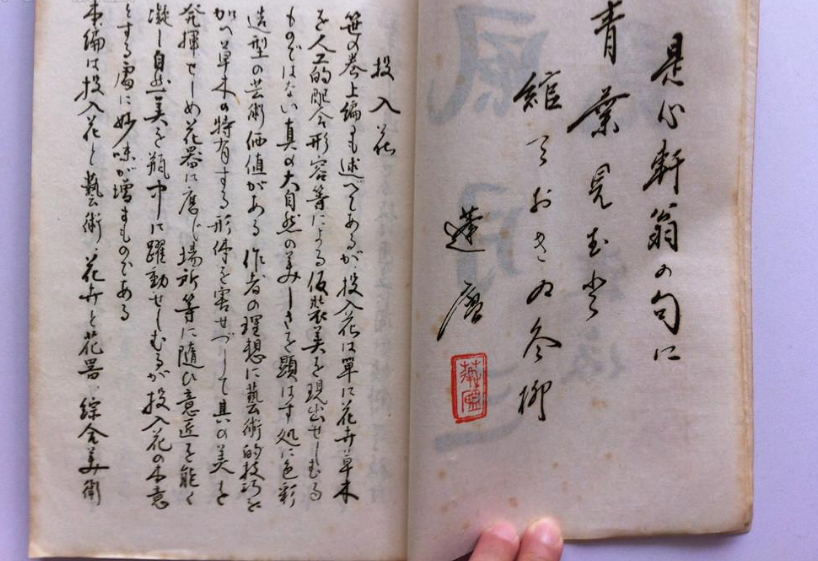 是心軒翁の句に
青葉見むと
綰ておきぬ冬柳
蓮
投入花
笹の巻上編にも述べてあるが、投入花は単に花卉草木
を人工的配合形容等による仮装美を現出せしむる
ものではない真の大自然の美しさを顕はす処に色彩
造型の芸術価値がある 作者の理想に藝術的技巧を
加へ草木の特有する形体を害せづして其の美を
発揮せしめ花器に応じ場所等に随ひ意匠を能く
凝し自然美を瓶中に躍動せしむるが投入花の本意
とする處に妙味が増すものである
本編は投入花と藝術、花卉と花器、綜合美術